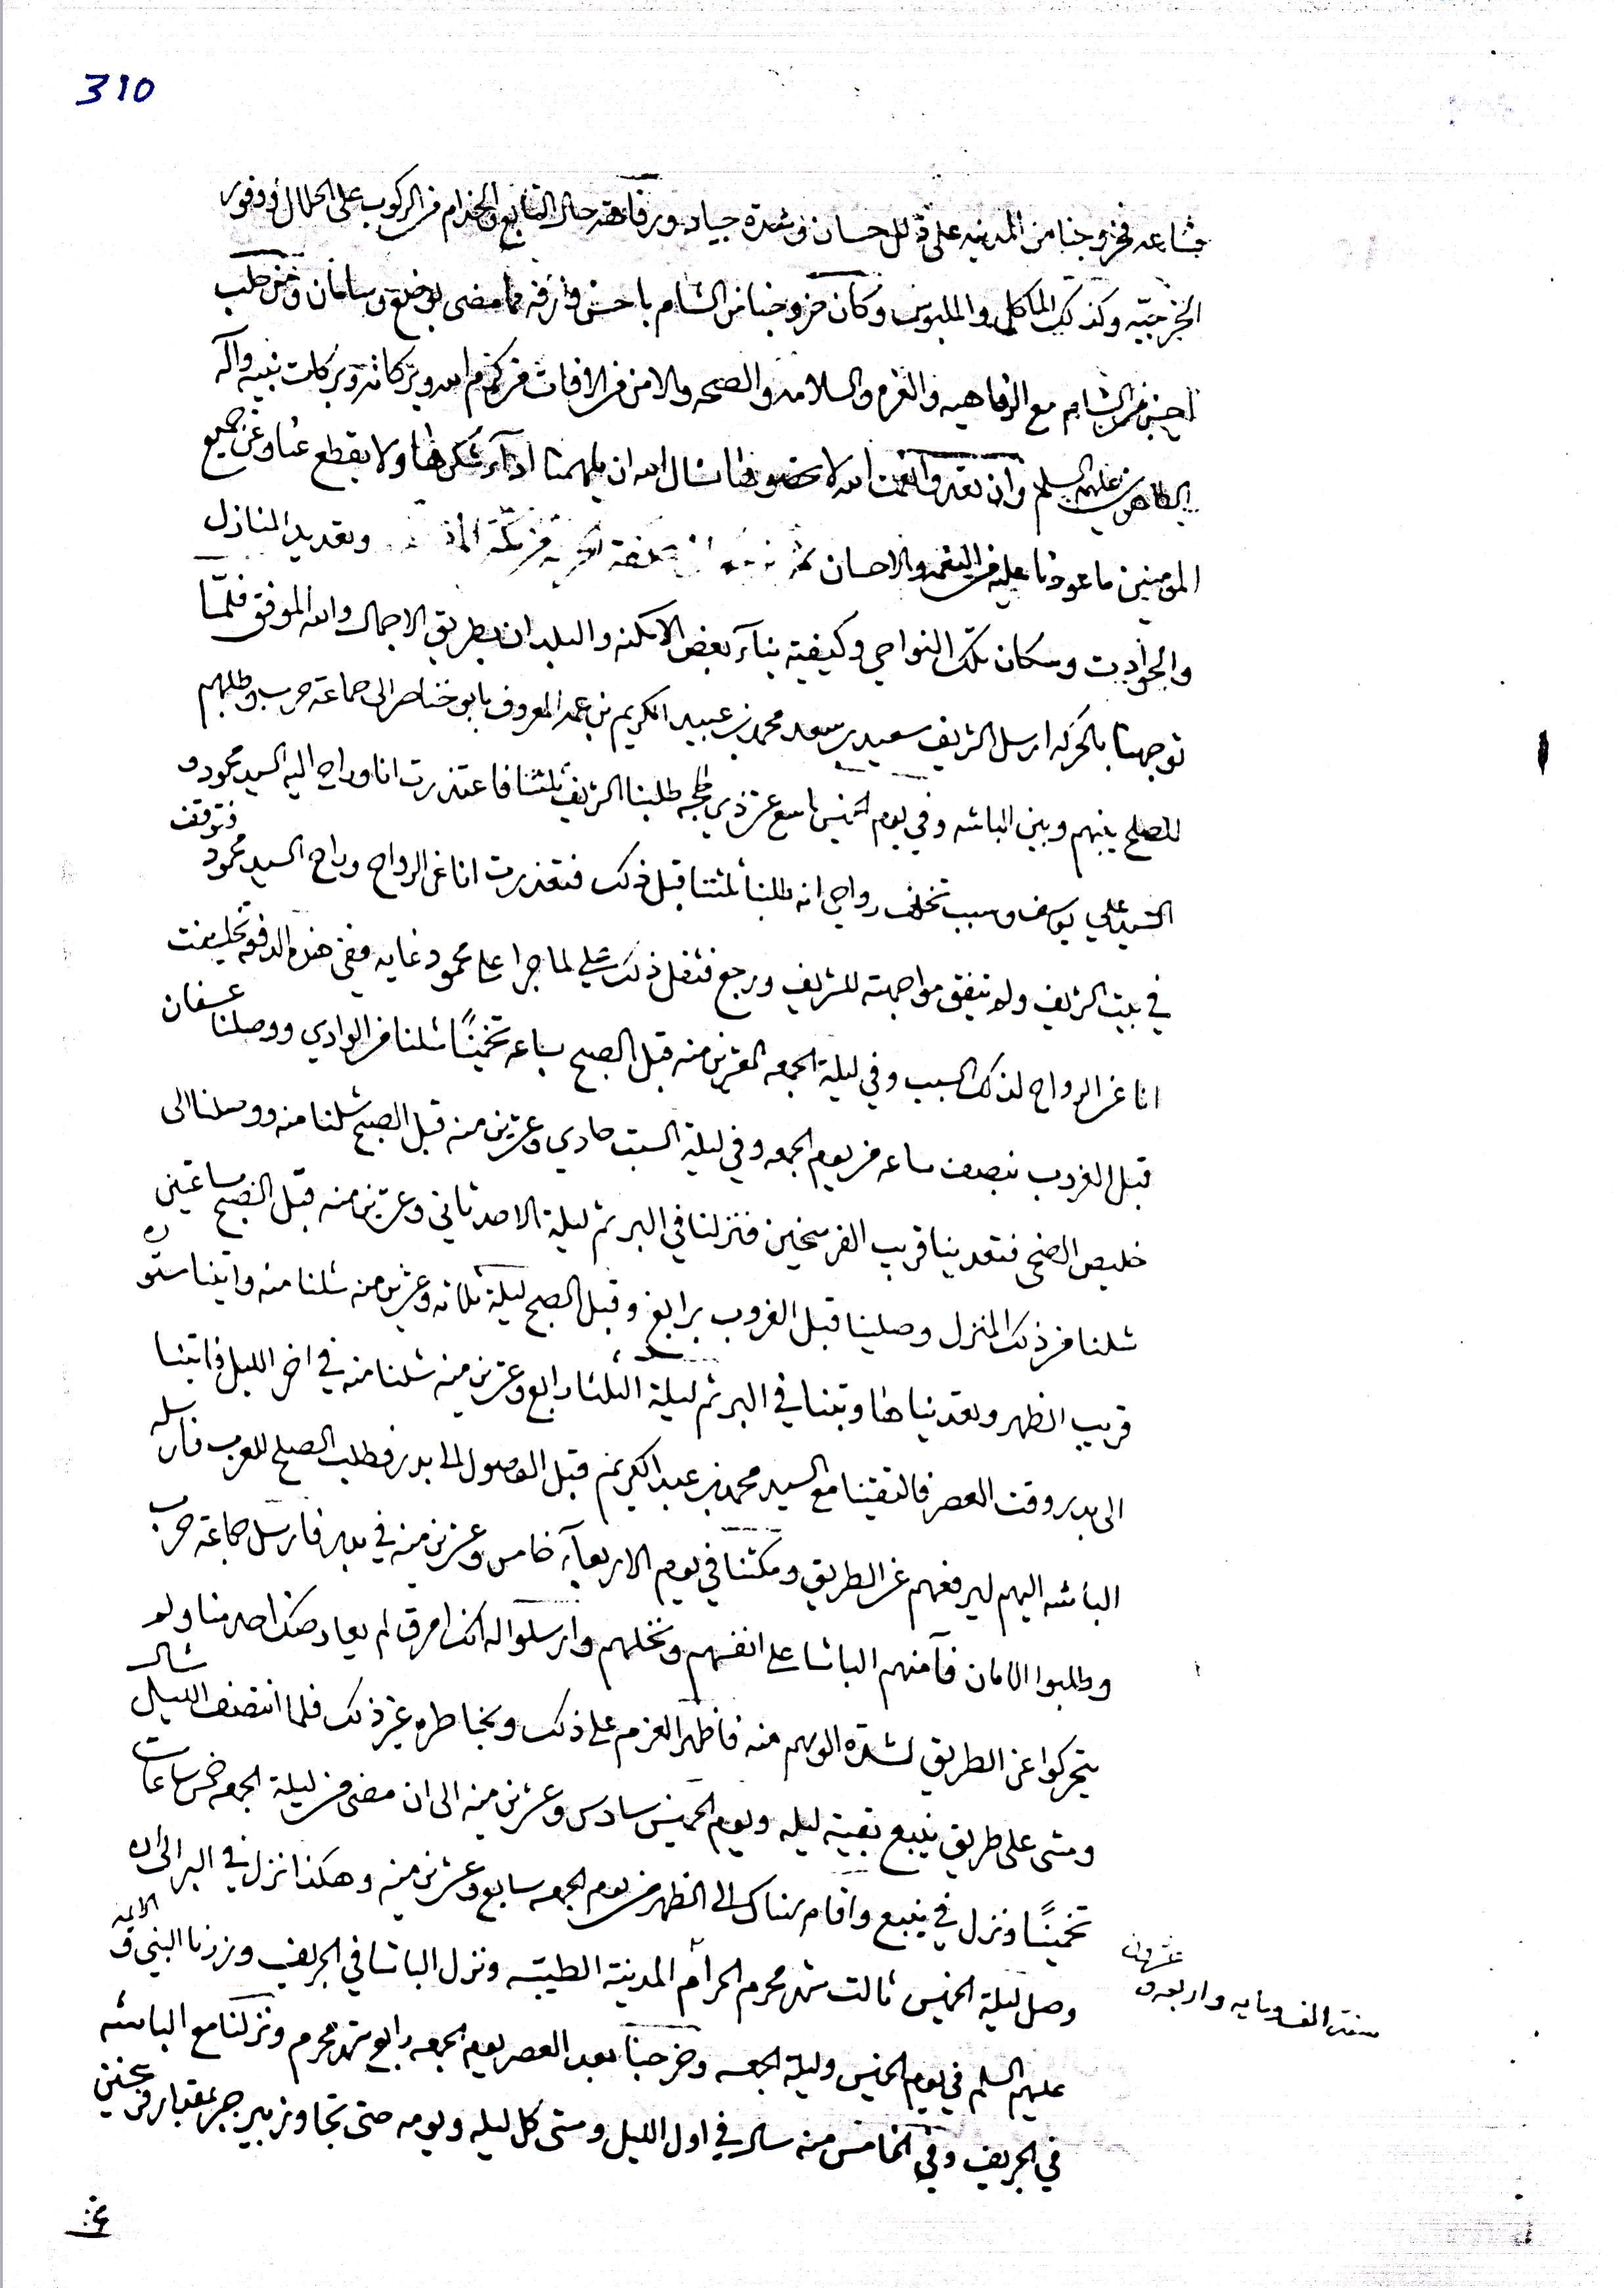 310
فخروجنا من المدينه على ذلل حسان وعدة جياد ورفاهة حال التابع والخدام من الركوب على الجمال ووفور
الخرجيّه وكذلك الماكل والملبوس وكان خروجنا من الشام باحسن وارفه مما مضى بوضع وسامان
من الشام مع الرفاهيه والعزم والسلامه والصحه والامن من الافات من كرم الله وبركاته وبركات نبيه وآله
الطاهرين عليهم السلم وان تعدوا نعمت الله لا تحصوها نسال الله ان يلهمنا ادآء شكرها ولا يقطع عنا وعن جميع
المومنين ما عودنا عليه من النعمه والاحسان من مكّة وتعديد المنازل
والحوادث وسكان تلك النواحي وكيفية بنآء بعض الامكنه والبلدان بطريق الاجمال والله الموفق فلمّا
توجهنا بالحركه ارسل الشريف سعيد بن سعد محمد بن عبد الكريم بن المعروف بابو خناصر الى جماعة حرب وطلبهم
للصلح بينهم وبين الباشه وفي يوم الخميس تاسع عشر ذي حجه طلبنا الشريف ثلثتنا فاعتذرت انا وراح اليه السيد محمود و
السيد علي يوسف وسبب تخلف رواحي انه طلبنا ثلثتنا قبل ذلك فتعذرت انا عن الرواح وراح السيد محمود فتوقف
في بيت الشريف ولم تتفق مواجهته للشريف ورجع فثقل ذلك علي لما جرا على محمود غايه ففي هذه الدفعه تخليفت
انا عن الرواح لذلك السبب وفي ليلة الجمعه العشرين منه قبل الصبح بساعه تخمينًا شلنا من الوادي ووصلنا عسفان
قبل الغروب بنصف ساعه من يوم الجمعه وفي ليلة السبت حادي وعشرين منه قبل الصبح شلنا منه ووصلنا الى
خليص الضحى فتعدينا قريب الفرسخين فنزلنا في البر ثم ليلة الاحد ثاني وعشرين منه قبل الصبح بساعتين
شلنا من ذلك المنزل وصلينا قبل الغروب برابغ وقبل الصبح ليلة ثلاثه وعشرين منه شلنا منه واتينا مستوره
قريب الظهر وتعديناها وبتنا في البر ثم ليلة الثلثا رابع وعشرين منه شلنا منه في اخر الليل واتينا
الى بدر وقت العصر فالتقينا مع السيد محمد بن عبد الكريم قبل الوصول الى بدر فطلب الصلح للعرب فارسله
الباشه اليهم ليرفعهم عن الطريق ومكثنا في يوم الاربعآء خامس وعشرين منه في بدر فارسل جماعة حرب
وطلبوا الامان فآمنهم الباشا على انفسهم ونخلهم وارسلوا له انك امرق لم يعارضك احد منا ولم
يتحركوا عن الطريق لشدة الوهم منه فاظهر العزم على ذلك وبخاطره غير ذلك فلما انتصف الليل شال
ومشى على طريق ينبع بقية ليله ويوم الخميس سادس وعشرين منه الى ان مضى من ليلة الجمعه خمس ساعات
تخمينًا ونزل في ينبع واقام هناك الى الظهر من يوم الجمعه سابع وعشرين منه وهكذا نزل في البر الى ان
وصل ليلة الخميس ثالث شهر محرم الحرام المدينة الطيبه ونزل الباشا في الجريف وزرنا النبي والائمه
سنة الف ومايه واربعه وعشرون
عليهم السلم في يوم الخميس وليلة الجمعه وخرجنا بعد العصر يوم الجمعه رابع شهر محرم ونزلنا مع الباشه
في الجريف وفي الخامس منه سار في اول الليل ومشى كل ليله ويومه حتى تجاوز بير جبر بمقدار فرسخين